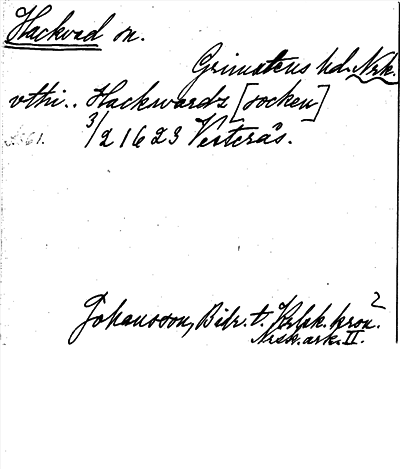 Hackvad sn.
Grimstens hd. Nrk.
vthi.. Hackwardz [socken]
3/2 1623 Vesterås.
Johansson, Bidr. t. kron. 2
Nrsk. ark. II.